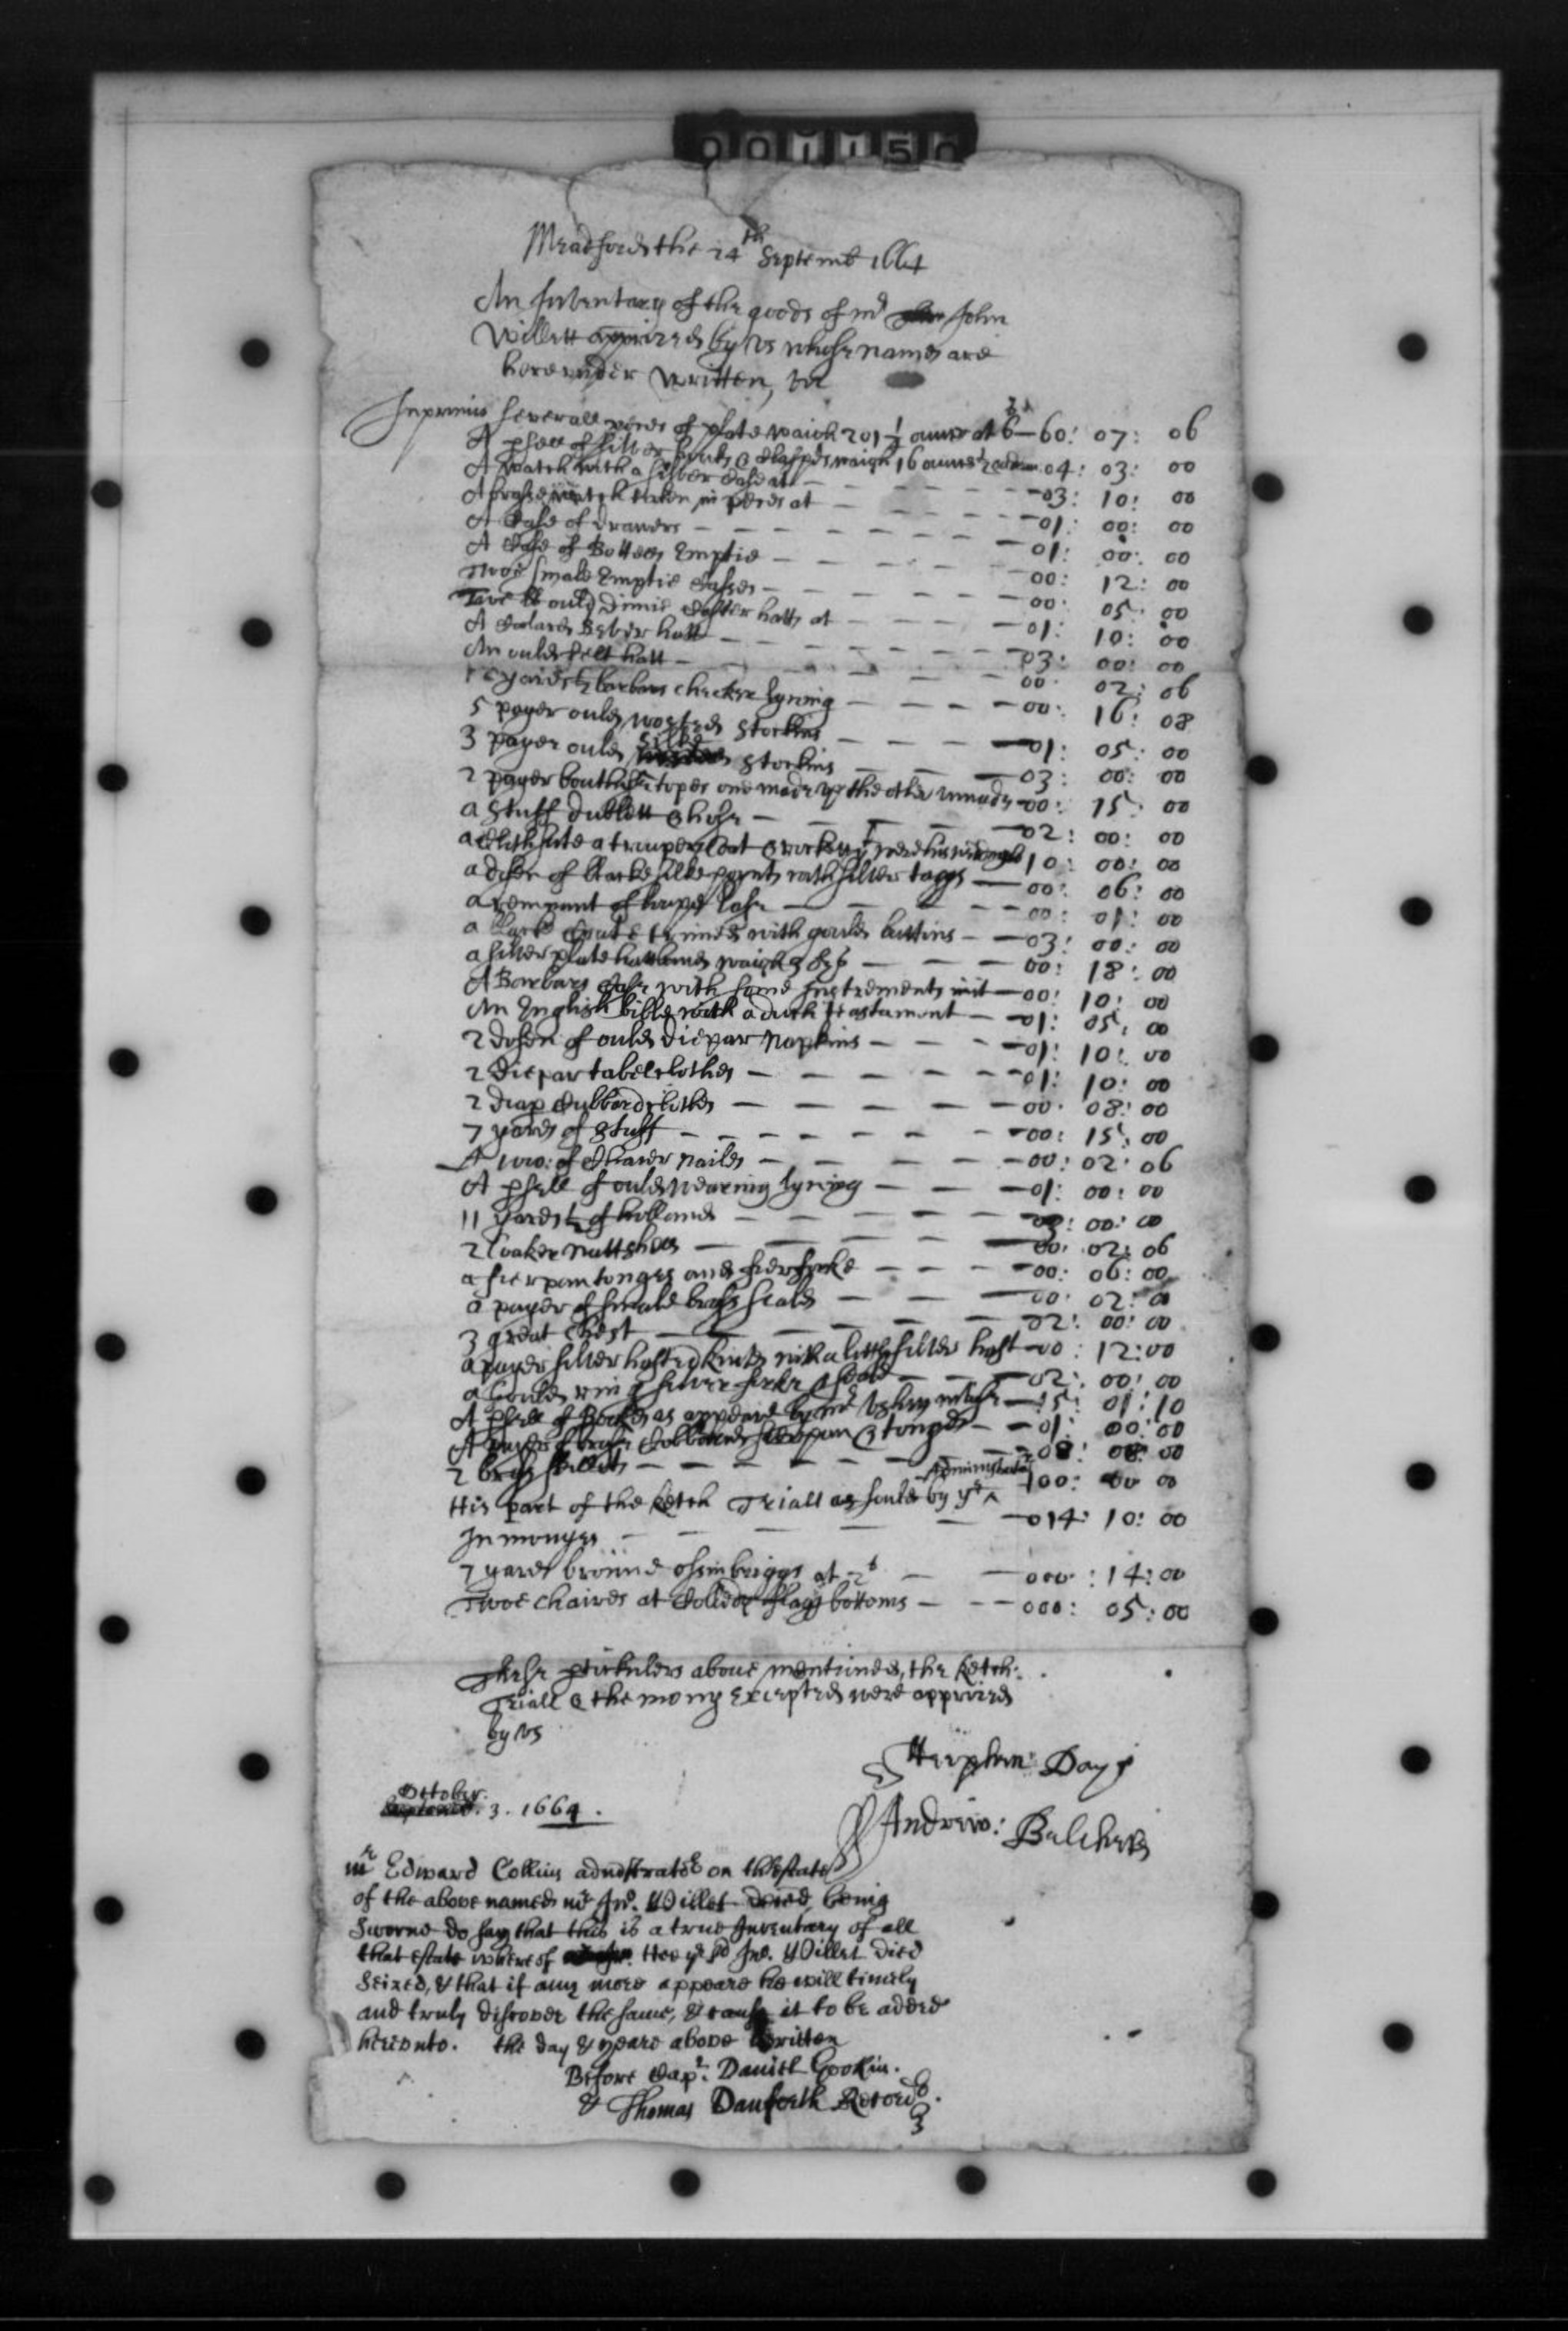 001150
Meadford the 24th Septemb 1664
An Inventary of the goods of mr John
Willett apprized by vs whose names are
herevnder written, viz
Inprimis severall peces of plate waich 201 1/4 ounce at 6s — 60: 07: 06
A psell of silver hucks & claspes waigh 16 ounces 04: 03: 00
A watch with a silver case at — 03: 10: 00
A brasse watch taken in peces at — 01: 00: 00
A Case of drawers — 01: 00: 00
A Case of Bottles Emptie — 00: 12: 00
Twoe smale Emptie Casses — 00: 05: 00
Twoe ould Caster hatts at — 01: 10: 00
A Bever hatt — 03: 00: 00
An ould felt hatt — 00: 02: 06
yards barbers checker lyning — 00: 16: 08
5 payer ould worsted Stockins — 01: 05: 00
3 payer ould silke Stockins — 03: 00: 00
2 payer topes one made vp the other vnmade — 00: 15: 00
a Stuff dublett & hose — 02: 00: 00
a Cloth sute a troupers Coat & 10: 00: 00
a dosen of blacke silke poynts with silver taggs — 00: 06: 00
a rempnant of lase — 00: 01: 00
a black trimed with gould buttins — 03: 00: 00
a silver plate hattband waigh — 00: 18: 00
A Barbars Case with some Instrements init — 00: 10: 00
An English bible with a duch teastament — 01: 05: 00
2 dosen of ould diepar Napkins — 01: 10: 00
2 diepar tabelclothes — 01: 10: 00
2 diap Cubbord clothes — 00: 08: 00
7 yards of Stuff — 00: 15: 00
A of nailes — 00: 02: 06
A psell of ould wearing lyning — 01: 00: 00
11 yards 1/2 of holland — 03: 00: 00
2 Coaker nuttshells — 00: 02: 06
a fierpan tonges and fierforke — 00: 06: 00
a payer of smale brass scales — 00: 02: 0
3 great Chest — 02: 00: 00
a payer silver hafted knives with a little silver haft — 00: 12: 00
a Gould ring — 02: 00: 00
A psell of Bookes as appeare by mr — 15: 01: 10
A payer of brase fierpan & tonges — 01: 00: 00
2 brass skellets — 08: 00
His part of the ketch Triall as sould by ye ^ Administrator 100: 00 00
In monyes — 014: 10: 00
7 yards browne osinbriggs at 2s — 000: 14: 00
Twoe chaires at flagg bottoms — 000: 05: 00
These pticulers aboue mentiined, the ketch
Triall & the mony Excepted were apprized
by vs
Steephen: Day
Andrew: Belcher
October
3. 1664.
mr Edward Collins admstrator on the estate
of the above named mr Jno. Willet being
sworne do say that this is a true Inventary of all
that estate whereof ye sd Jno. Willet died
seized, & that if any more appeare he will timely
and truly discover the same, & cause it to be added
herevnto. the day & yeare above written
Before Capt. Daniel Gookin.
& Thomas Danforth Recordr.